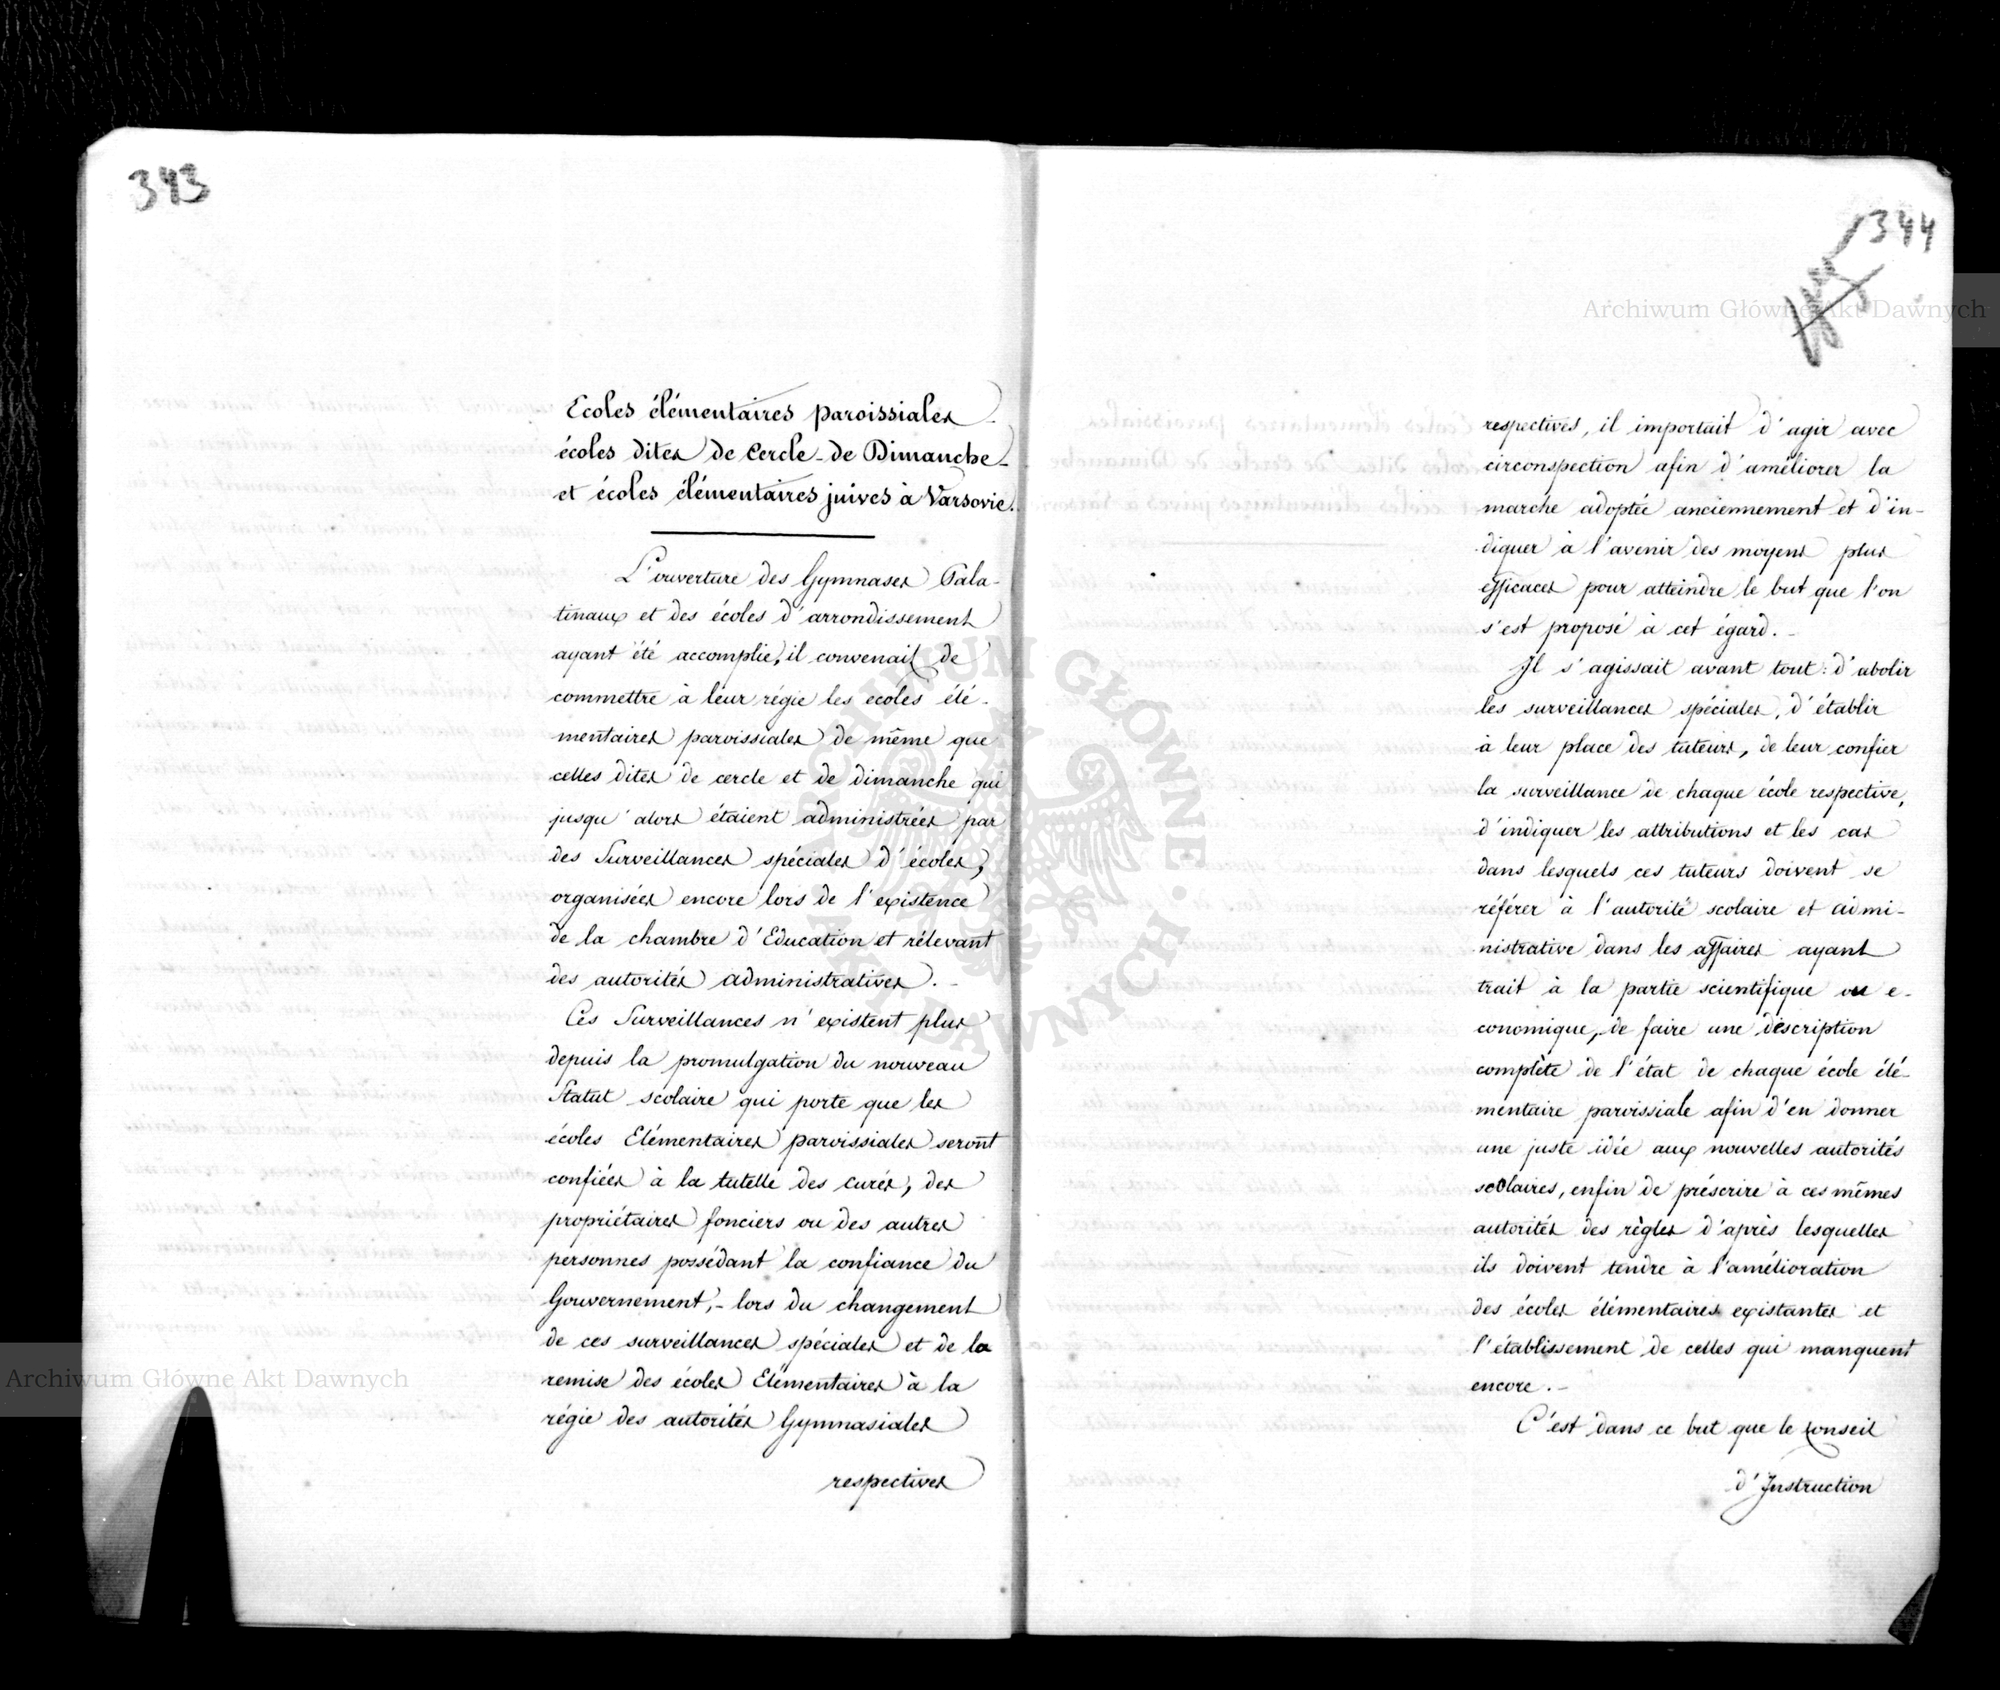 343
Ecoles élémentaires paroissiales
écoles dites de Cercle - de Dimanche -
et écoles élémentaires juives à Varsovie.
L'ouverture des Gymnases Pala-
tinaux et des écoles d'arrondissement
ayant été accomplie, il convenait de
commettre à leur régie les ecoles élé-
mentaires paroissiales de même que
celles dites de cercle et de dimanche qui
jusqu'alors étaient administrées par
des Surveillances spéciales d'écoles,
organisées encore lors de l'existence
de la chambre d'Education et rélevant
des autorités administratives. -
Ces Surveillances n'existent plus
depuis la promulgation du nouveau
Statut scolaire qui porte que les
écoles Elémentaires paroissiales seront
confiées à la tutelle des curés, des
propriétaires fonciers ou des autres
personnes possédant la confiance du
Gouvernement, - lors du changement
de ces surveillances spéciales et de la
remise des écoles Elémentaires à la
régie des autorités Gymnasiales
respectives
344
respectives, il importait d'agir avec
circonspection afin d'améliorer la
marche adoptée anciennement et d'in-
diquer à l'avenir des moyens plus
efficaces pour atteindre le but que l'on
s'est proposé à cet égard. -
Il s'agissait avant tout: d'abolir
les surveillances spéciales, d'établir
à leur place des tuteurs, de leur confier
la surveillance de chaque école respective,
d'indiquer les attributions et les cas
dans lesquels ces tuteurs doivent se
référer à l'autorité scolaire et admi-
nistrative dans les affaires ayant
trait à la partie scientifique ou e-
conomique, de faire une description
complète de l'état de chaque école élé-
mentaire paroissiale afin d'en donner
une juste idée aux nouvelles autorités
scolaires, enfin de préscrire à ces mêmes
autorités des règles d'après lesquelles
ils doivent tendre à l'amélioration
des écoles élémentaires existantes et
l'établissement de celles qui manquent
encore. -
C'est dans ce but que le conseil
d'Instruction
Archiwum Główne Akt Dawnych
Archiwum Główne Akt Dawnych
ARCHIWUM GŁÓWNE AKT DAWNYCH